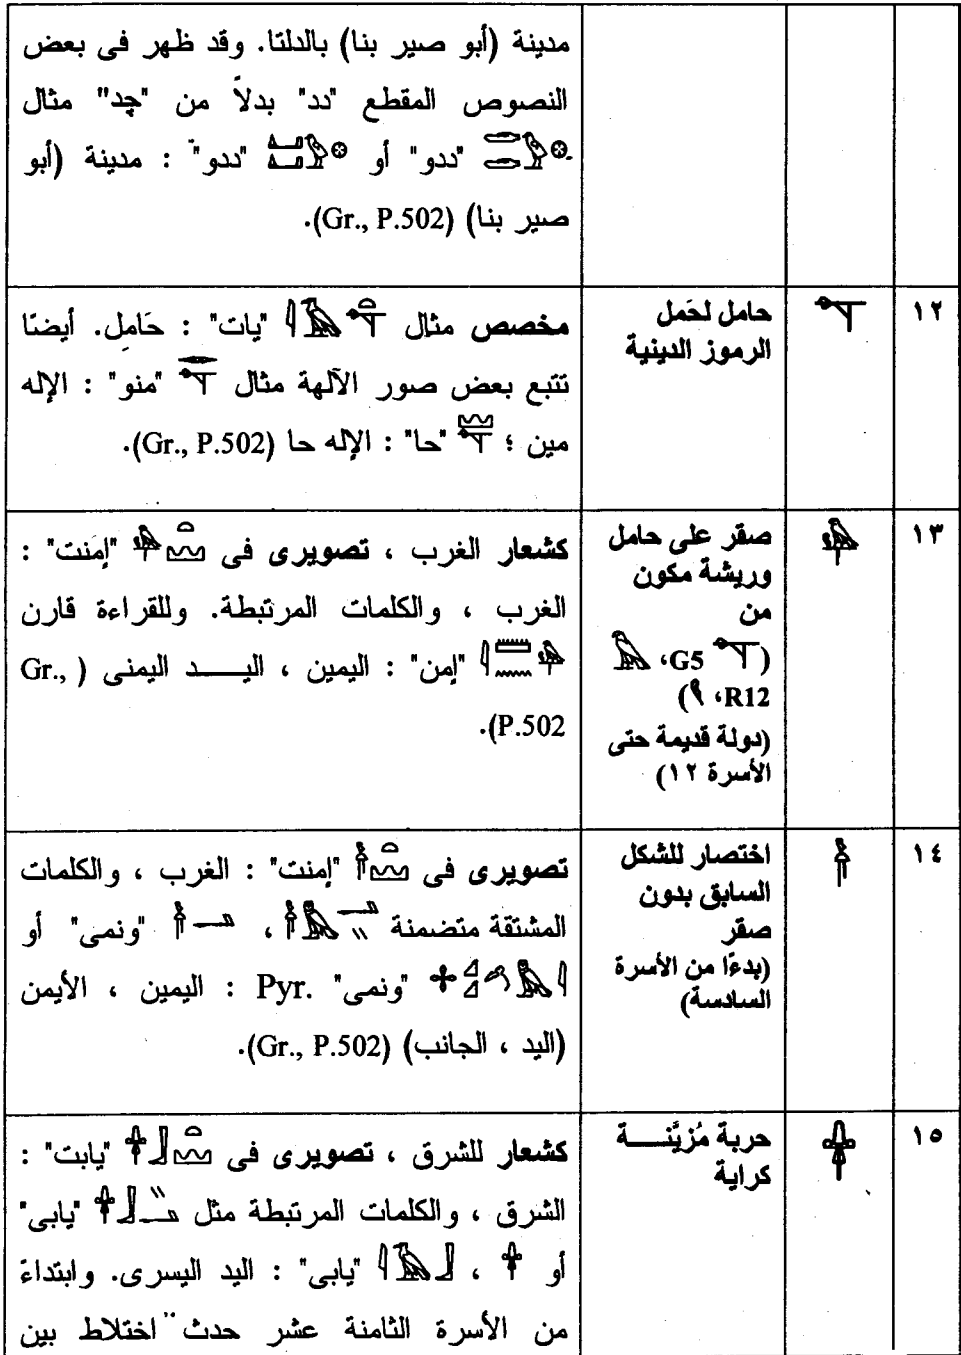 مدينة (أبو صير بنا) بالدلتا. وقد ظهر فى بعض
النصوص المقطع "دد" بدلاً من "چد" مثال
"ددو" أو "ددو" : مدينة (أبو
صير بنا) (Gr., P.502).
١٢
حامل لحَمل
الرموز الدينية
مخصص مثال "يات" : حَامِل. أيضًا
تتبع بعض صور الآلهة مثال "منو" : الإله
مين ؛ "حا" : الإله حا (Gr., P.502).
١٣
صقر على حامل
وريشة مكون
من
(G5 ،
R12 ، )
(دولة قديمة حتى
الأسرة ١٢)
كشعار الغرب ، تصويرى فى "إمَنت" :
الغرب ، والكلمات المرتبطة. وللقراءة قارن
"إمن" : اليمين ، اليـــد اليمنى (Gr.,
P.502).
١٤
اختصار للشكل
السابق بدون
صقر
(بدءًا من الأسرة
السادسة)
تصويرى فى "إمنت" : الغرب ، والكلمات
المشتقة متضمنة ، "ونمى" أو
"ونمى" Pyr. : اليمين ، الأيمن
(اليد ، الجانب) (Gr., P.502).
١٥
حربة مُزيَّنـــة
كراية
كشعار للشرق ، تصويرى فى "يابت" :
الشرق ، والكلمات المرتبطة مثل "يابى"
أو ، "يابى" : اليد اليسرى. وابتداءً
من الأسرة الثامنة عشر حدث اختلاط بين